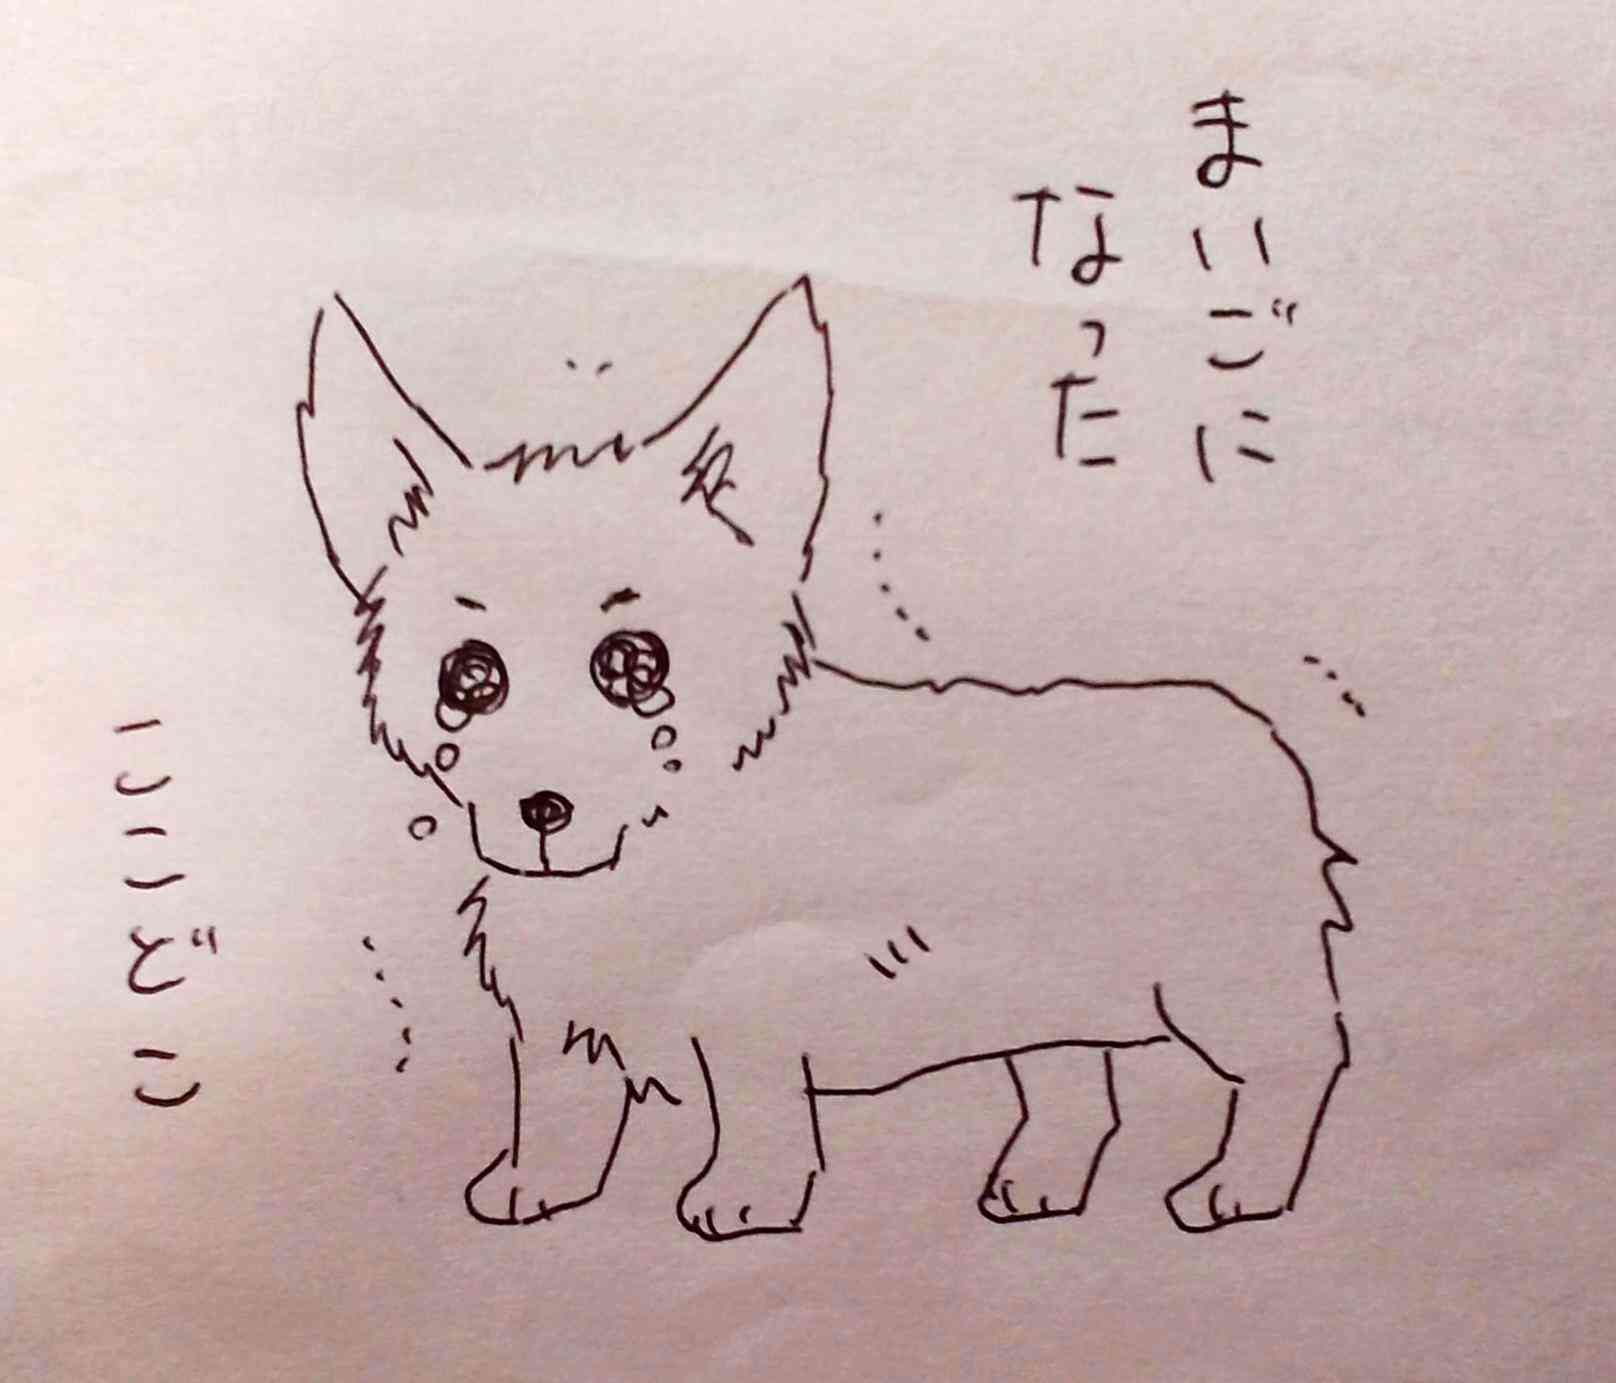 まいごに
なった
ここどこ